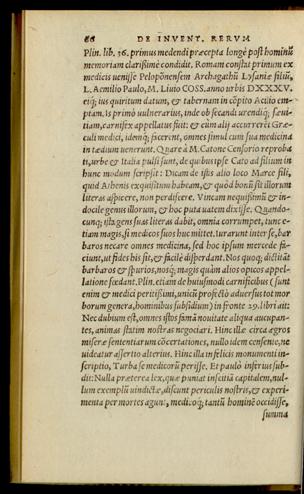 66 DE INVENT. RERVM
Plin. lib. 36. primus medendi præcepta longè post hominũ
memoriam clarißimè condidit. Romam constat primum ex
medicis uenisse Peloponēsem Archagathũ Lysaniæ filiũ,
L. Aemilio Paulo, M. Liuio COSS. anno urbis DXXXXV.
eiq́; ius quiritum datum, & tabernam in cõpito Acilio em-
ptam. Is primò uulnerarius, inde ob secandi urendiq́; sæui-
tiam, carnifex appellatus fuit: & cùm alij accurrerēt Græ-
culi medici, idemq́; facerent, omnes simul cum sua medicina
in tædium uenerunt. Quare à M. Catone Censorio reproba
ti, urbe & Italia pulsi sunt, de quibus ipse Cato ad filium in
hunc modum scripsit: Dicam de istis alio loco Marce fili,
quid Athenis exquisitum habeam, & quòd bonũ sit illorum
literas aspicere, non perdiscere. Vincam nequißimũ & in-
docile genus illorum, & hoc puta uatem dixisse. Quando-
cunq́; ista gens suas literas dabit, omnia corrumpet, tunc e-
tiam magis, si medicos suos huc mittet. Iurarunt inter se, bar
baros necare omnes medicina, sed hoc ipsum mercede fa-
ciunt, ut fides his sit, & facilè disperdant. Nos quoq; dictitãt
barbaros & spurios, nosq́; magis quàm alios opicos appel-
latione fœdant. Plin. etiam de huiusmodi carnificibus ( sunt
enim & medici peritißimi, unicũ profectò aduersus tot mor
borum genera, hominibus subsidium) in fronte 29. libri ait:
Nec dubium est, omnes istos famã nouitate aliqua aucupan-
tes, animas statim nostras negociari. Hinc illæ circa ægros
miseræ sententiarum cõcertationes, nullo idem censente, ne
uideatur assertio alterius. Hinc illa infelicis monumenti in-
scriptio, Turba se medicorũ perisse. Et paulò inferius sub-
dit: Nulla præterea lex, quæ puniat inscitiã capitalem, nul-
lum exemplũ uindictæ, discunt periculis nostris, & experi-
menta per mortes agunt, medicoq́; tantũ hominē occidisse,
summa